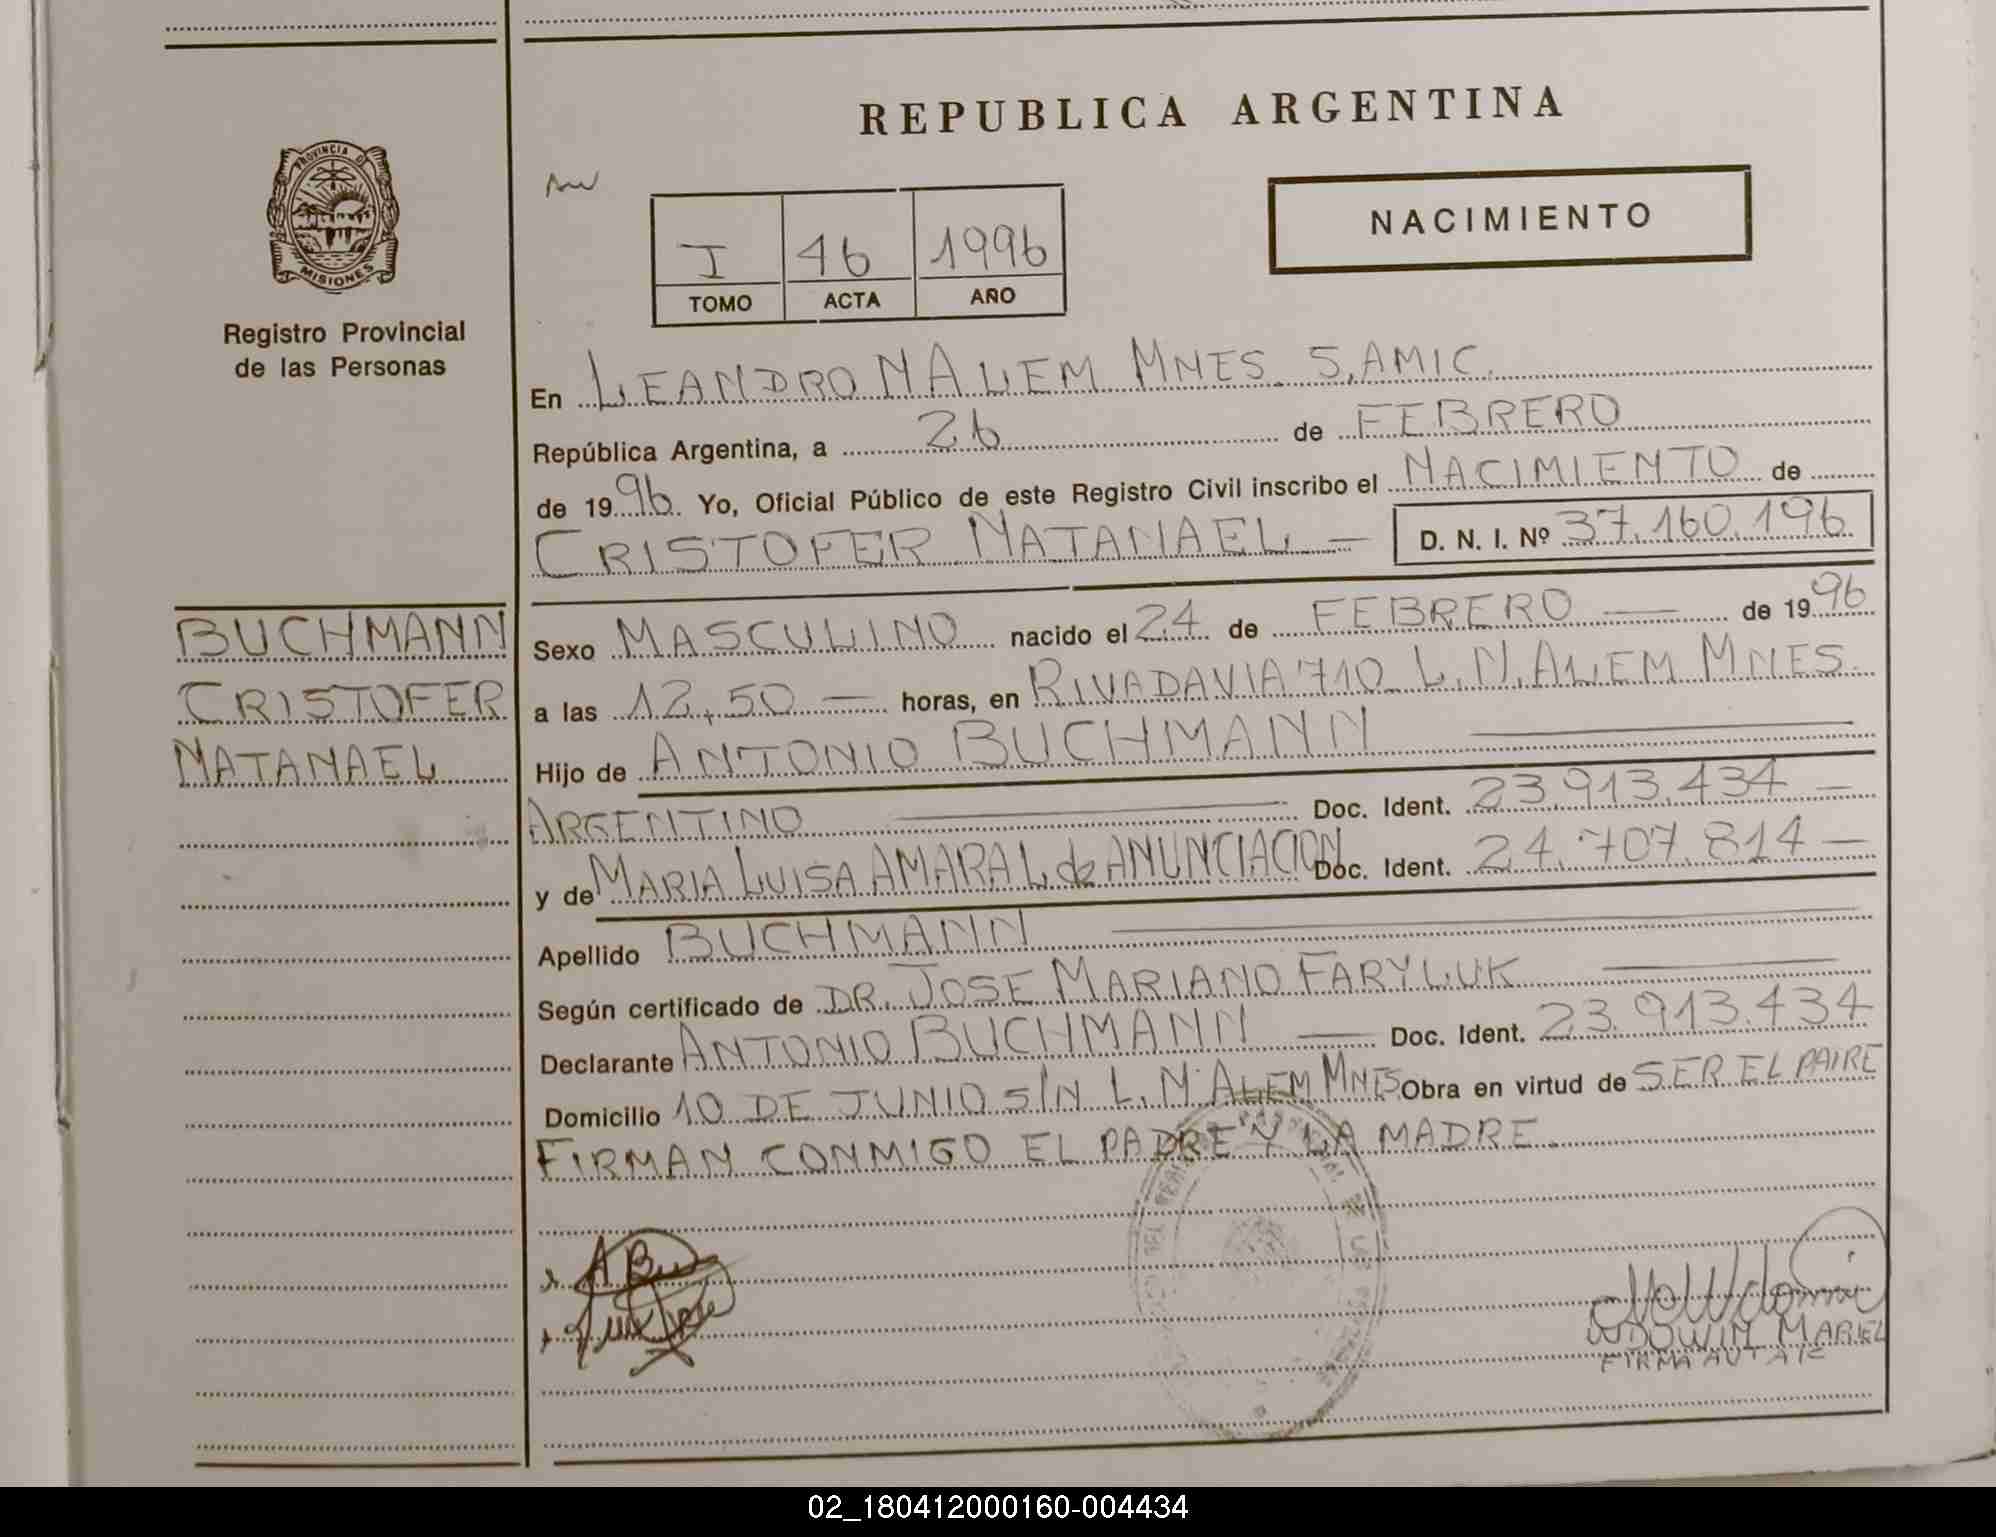 REPUBLICA ARGENTINA
PROVINCIA D
MISIONES
Registro Provincial
de las Personas
I 46 1996
TOMO ACTA AÑO
NACIMIENTO
En LEANDRO N ALEM MNES. S,AMIC.
República Argentina, a 26 de FEBRERO
de 1996. Yo, Oficial Público de este Registro Civil inscribo el NACIMIENTO de
CRISTOFER NATANAEL — D. N. I. Nº 37.160.196
BUCHMANN
CRISTOFER
NATANAEL
Sexo MASCULINO nacido el 24 de FEBRERO — de 1996
a las 12,50 — horas, en RIVADAVIA 710 L.N.ALEM MNES.
Hijo de ANTONIO BUCHMANN
ARGENTINO Doc. Ident. 23.913.434 —
y de MARIA LUISA AMARAL de ANUNCIACION Doc. Ident. 24.707.814 —
Apellido BUCHMANN
Según certificado de DR. JOSE MARIANO FARYLUK
Declarante ANTONIO BUCHMANN — Doc. Ident. 23.913.434
Domicilio 10 DE JUNIO S/N L.N ALEM MNES Obra en virtud de SER EL PAIRE
FIRMAN CONMIGO EL PADRE Y LA MADRE.
MARIEL
FIRMA
02_180412000160-004434